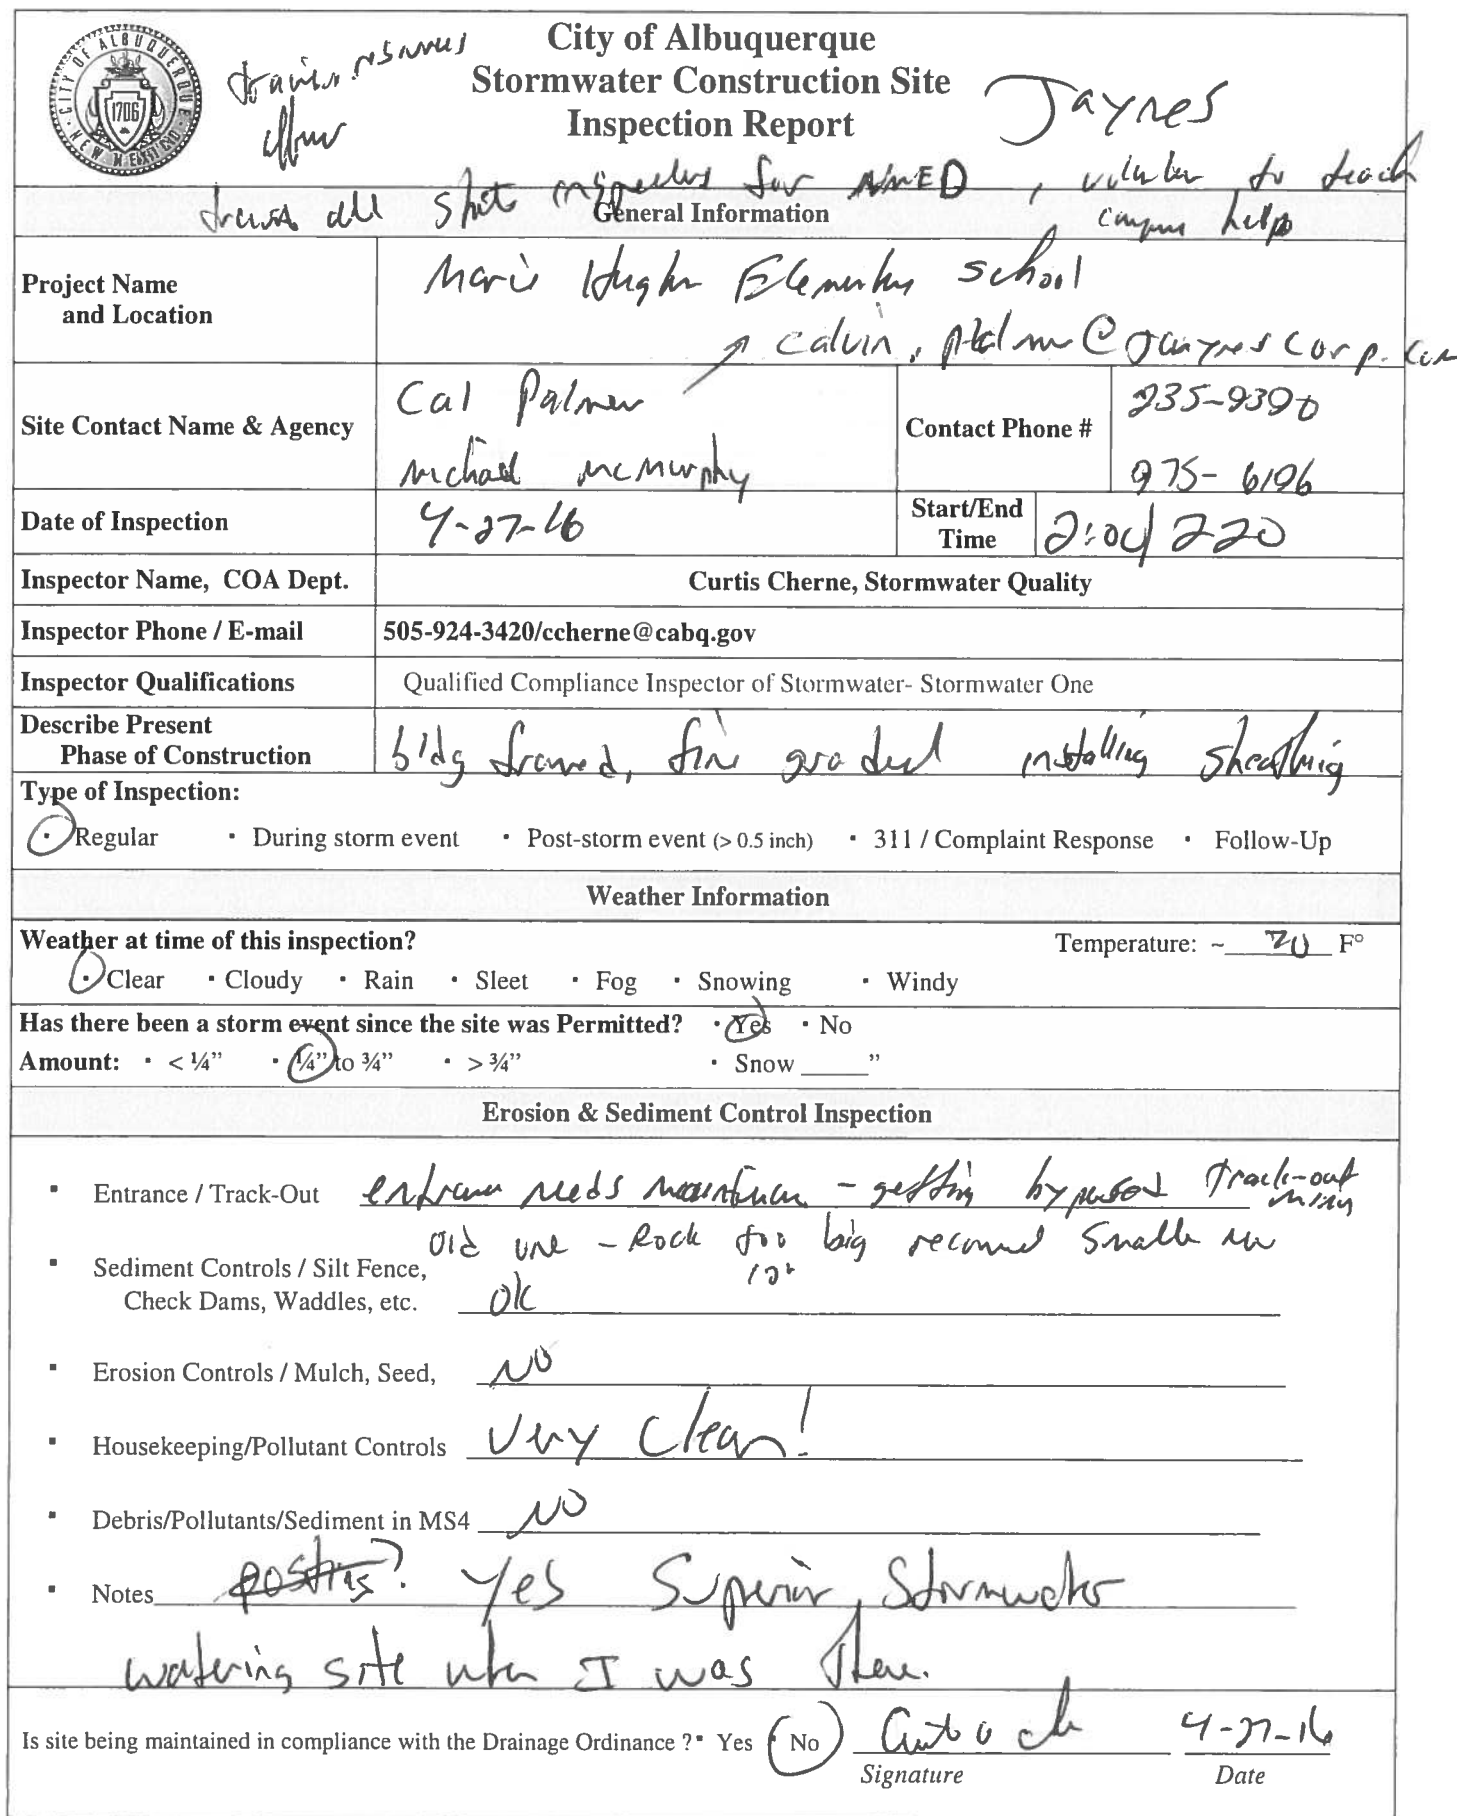 CITY OF ALBUQUERQUE
NEW MEXICO
1706
City of Albuquerque
Stormwater Construction Site
Inspection Report
Jaynes
all State inspectors for NMED, to teach
General Information
campus help
Project Name
and Location
Marie Hughes Elementary School
calvin.palmer@jaynescorp.com
Site Contact Name & Agency
Cal Palmer
Michael McMurphy
Contact Phone #
235-9390
975-6196
Date of Inspection
4-27-16
Start/End
Time
2:00/220
Inspector Name, COA Dept.
Curtis Cherne, Stormwater Quality
Inspector Phone / E-mail
505-924-3420/ccherne@cabq.gov
Inspector Qualifications
Qualified Compliance Inspector of Stormwater- Stormwater One
Describe Present
Phase of Construction
bldg framed, fine graded installing sheathing
Type of Inspection:
· Regular · During storm event · Post-storm event (> 0.5 inch) · 311 / Complaint Response · Follow-Up
Weather Information
Weather at time of this inspection? Temperature: ~ 70 F°
· Clear · Cloudy · Rain · Sleet · Fog · Snowing · Windy
Has there been a storm event since the site was Permitted? · Yes · No
Amount: · < ¼” · ¼” to ¾” · > ¾” · Snow _____”
Erosion & Sediment Control Inspection
▪ Entrance / Track-Out entrance needs maintenance - getting bypassed Track-out
old one - Rock too big recommend smaller
▪ Sediment Controls / Silt Fence,
Check Dams, Waddles, etc. OK
▪ Erosion Controls / Mulch, Seed, NO
▪ Housekeeping/Pollutant Controls Very Clean!
▪ Debris/Pollutants/Sediment in MS4 NO
▪ Notes posting? Yes Superior Stormwater
watering site when I was there.
Is site being maintained in compliance with the Drainage Ordinance ?▪ Yes ▪ No 4-27-16
Signature Date